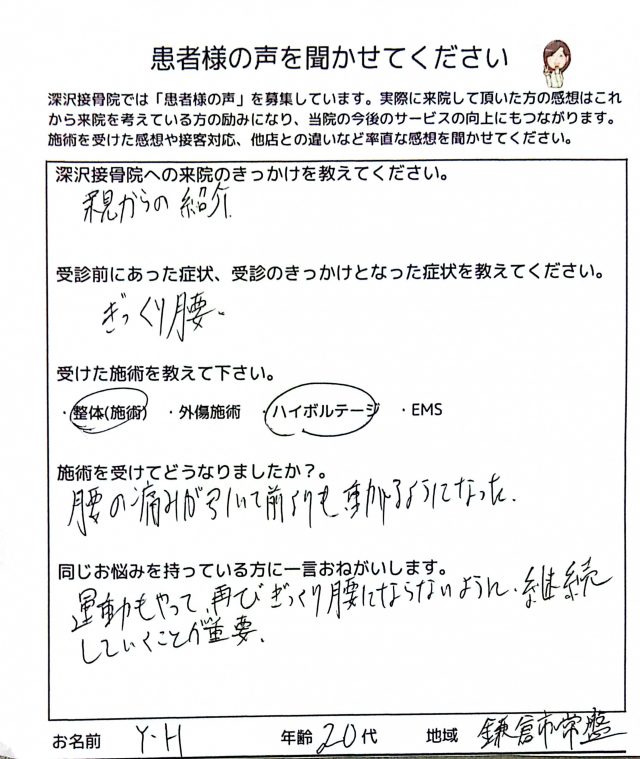 患者様の声を聞かせてください
深沢接骨院では「患者様の声」を募集しています。実際に来院して頂いた方の感想はこれ
から来院を考えている方の励みになり、当院の今後のサービスの向上にもつながります。
施術を受けた感想や接客対応、他店との違いなど率直な感想を聞かせてください。
深沢接骨院への来院のきっかけを教えてください。
親からの紹介
受診前にあった症状、受診のきっかけとなった症状を教えてください。
ぎっくり腰。
受けた施術を教えて下さい。
・整体(施術) ・外傷施術 ・ハイボルテージ ・EMS
施術を受けてどうなりましたか？。
腰の痛みが引いて前よりも動けるようになった。
同じお悩みを持っている方に一言おねがいします。
運動もやって、再びぎっくり腰にならないように、継続
していくことが重要。
お名前 Y・H 年齢 20代 地域 鎌倉市常盤